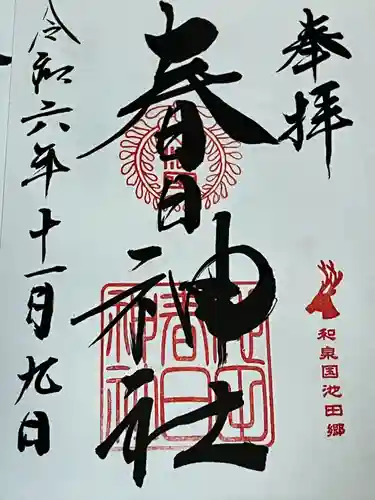 奉拝
和泉国池田郷
春日神社
令和六年十一月九日